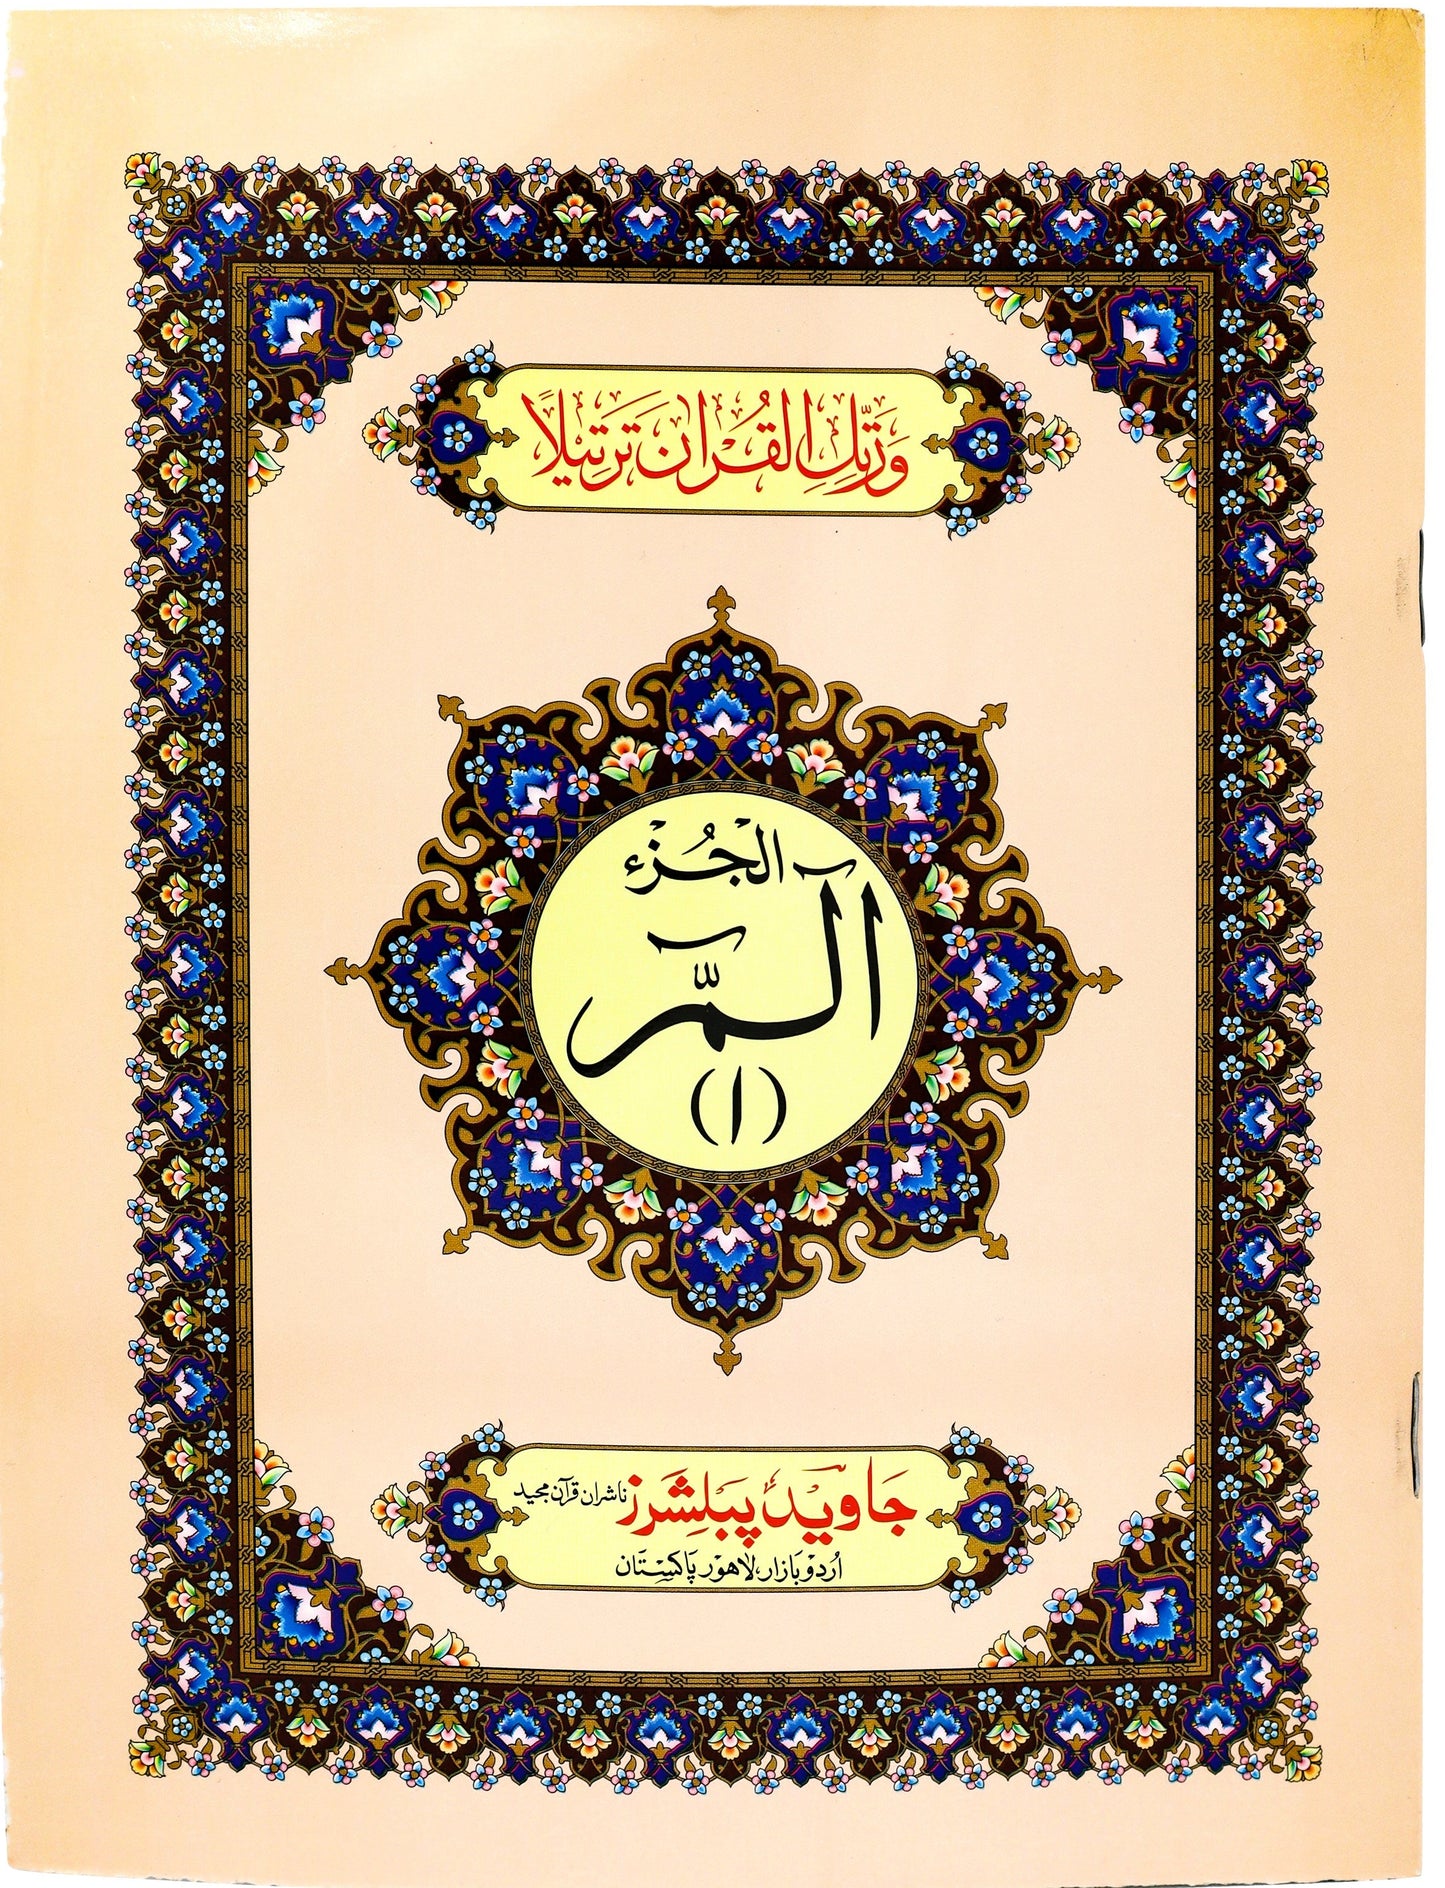 وَرَتِّلِ الْقُرْاٰنَ تَرْتِيْلًا
الْجُزْء
آلٓمّٓ
(١)
جَاوِيْد پَبْلِشَرْز ناشران قرآن مجید
اُردُو بَازار، لَاهَوْر پَاکِسْتَان